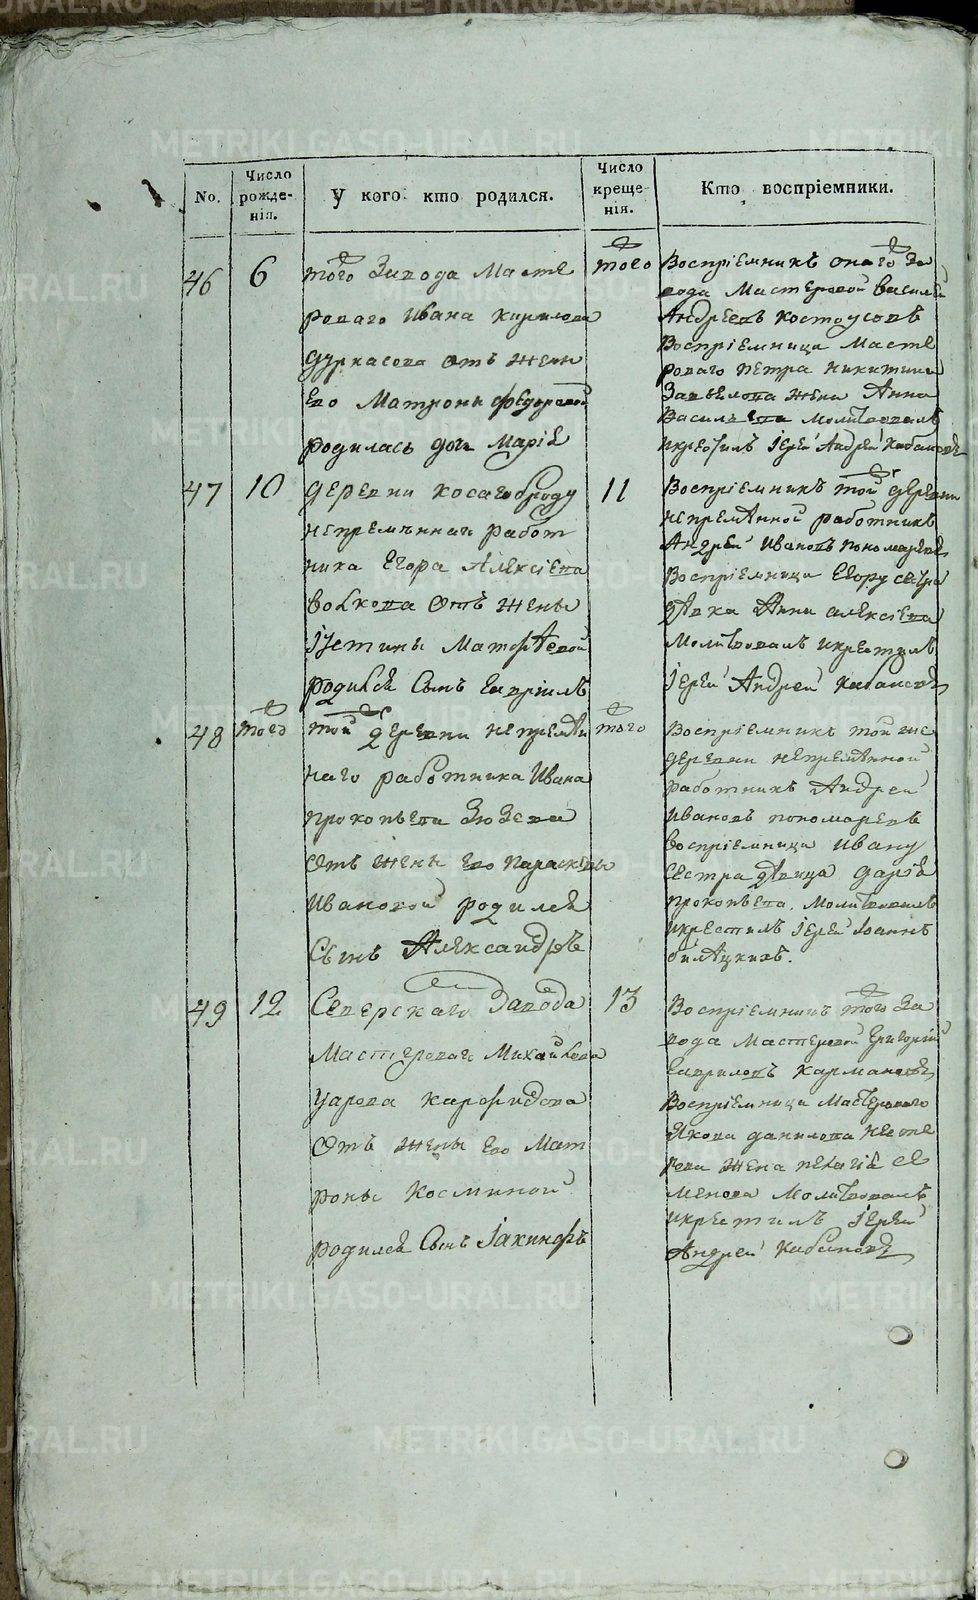 METRIKI.GASO-URAL.RU
No.
Число рожде-нія.
У кого кто родился.
Число креще-нія.
Кто воспріемники.
46
6
того Завода Масте
роваго Ивана Кирилова
Дуркасова отъ жены
Его Матроны Федоровой
родилась дочь Марія
того
Воспріемникъ онаго За
вода Мастеровой Василей
Андреевъ Костоусовъ
Воспріемница Масте
роваго Петра Никитина
жена Анна
Васильева Молитвовалъ
икрестилъ Іерей Андрей Кабаковъ
47
10
деревни Косагоброду
непременнаго работ
ника Егора Алексіева
Волкова отъ жены
Іустины Матфѣевой
родился Сынъ Гавріилъ
11
Воспріемникъ той деревни
непремѣнной работникъ
Андрей Ивановъ Пономаревъ
Воспріемница Егору сестра
дѣвка Анна Алексіева
Молитвовалъ икрестилъ
Іерей Андрей Кабаковъ
48
того
той деревни непремѣн
наго работника Ивана
Прокопьева Зюзева
отъ жены Его Параскевы
Ивановой родился
Сынъ Александръ
того
Воспріемникъ той же
деревни непремѣнной
работникъ Андрей
Ивановъ Пономаревъ
Воспріемница Ивану
Сестра дѣвица Дарія
Прокопьева. Молитвовалъ
икрестилъ Іерей Іоаннъ
49
12
Северскаго Завода
Мастероваго Михайла
Уарова Карфидова
отъ жены Его Мат
роны Косминой
родился Сынъ Іакинфъ
13
Воспріемникъ того За
вода Мастеровой Григорій
Гавриловъ Кармановъ
Воспріемница Мастероваго
Якова Данилова Несте
рова жена Пелагія Се
менова Молитвовалъ
икрестилъ Іерей
Андрей Кабаковъ